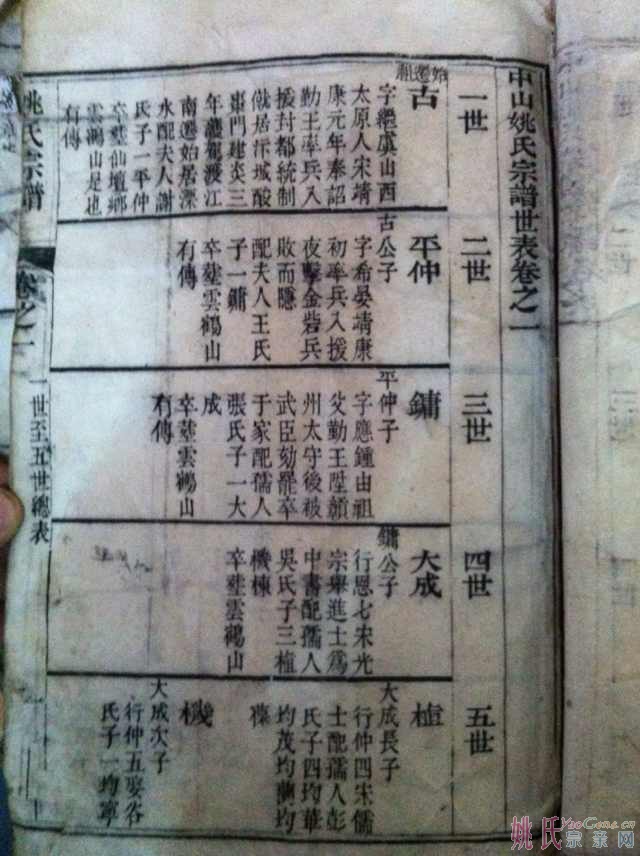 中山姚氏宗譜世表卷之一
一世
始遷祖
古
字繼虞山西
太原人宋靖
康元年奉詔
勤王率兵入
援封都統制
僦居汴城酸
棗門建炎三
年護駕渡江
南遷始居溧
水配夫人謝
氏子一平仲
卒塟仙壇鄉
雲鶴山是也
有傳
二世
古公子
平仲
字希晏靖康
初率兵入援
夜擊金砦兵
敗而隱
配夫人王氏
子一鏞
卒塟雲鶴山
有傳
三世
平仲子
鏞
字應鍾由祖
父勤王陞贛
州太守後被
武臣劾罷卒
于家配孺人
張氏子一大
成
卒塟雲鶴山
有傳
四世
鏞公子
大成
行恩七宋光
宗舉進士為
中書配孺人
吳氏子三植
機棟
卒塟雲鶴山
五世
大成長子
植
行仲四宋儒
士配孺人彭
氏子四均華
均茂均蘭均
葆
大成次子
機
行仲五娶谷
氏子一均寧
姚氏宗譜
卷之一
一世至五世總表
姚氏宗亲网
YaoGens.cn